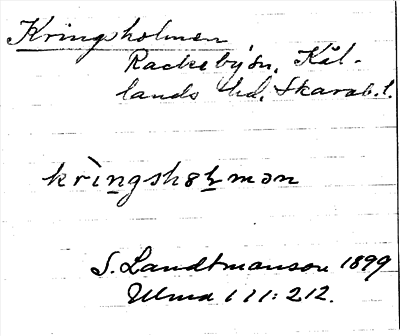 Kringsholmen
Rackeby sn, Kål-
lands hd, Skarab. l.
krìngshɷlmən
S. Landtmanson 1899
Ulma 111:212.